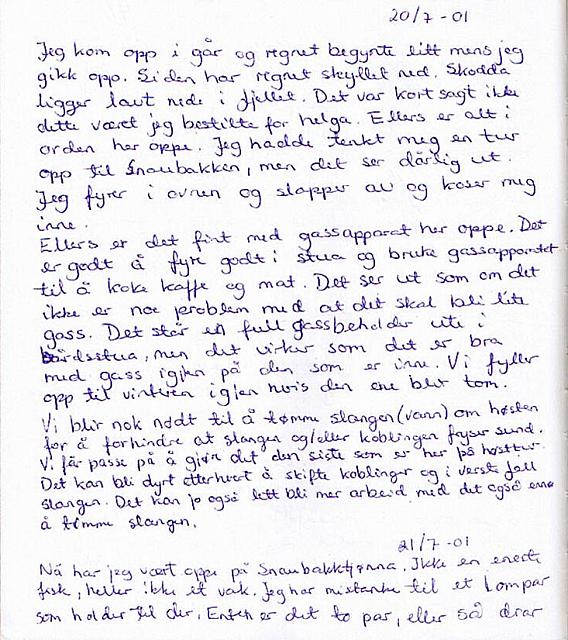 20/7-01
Jeg kom opp i går og regnet begynte litt mens jeg
gikk opp. Siden har regnet skyllet ned. Skodda
ligger lavt nede i fjellet. Det var kort sagt ikke
dette været jeg bestilte for helga. Ellers er alt i
orden her oppe. Jeg hadde tenkt meg en tur
opp til Snaubakken, men det ser dårlig ut.
Jeg fyrer i ovnen og slapper av og koser meg
inne.
Ellers er det fint med gassapparat her oppe. Det
er godt å fyre godt i stua og bruke gassapparatet
til å koke kaffe og mat. Det ser ut som om det
ikke er noe problem med at det skal bli lite
gass. Det står en full gassbeholder ute i
bårdsstua, men det virker som det er bra
med gass igjen på den som er inne. Vi fyller
opp til vinteren igjen hvis den ene blir tom.
Vi blir nok nødt til å tømme slangen (vann) om høsten
for å forhindre at slangen og/eller koblingen fryser sund.
Vi får passe på å gjøre det den siste som er her på høsttur.
Det kan bli dyrt etterhvert å skifte koblinger og i verste fall
slangen. Det kan jo også lett bli mer arbeid med det også enn
å tømme slangen.
21/7-01
Nå har jeg vært oppe på Snaubakktjønna. Ikke en eneste
fisk, heller ikke et vak. Jeg har mistanke til et lompar
som holder til der. Enten er det to par, eller så drar